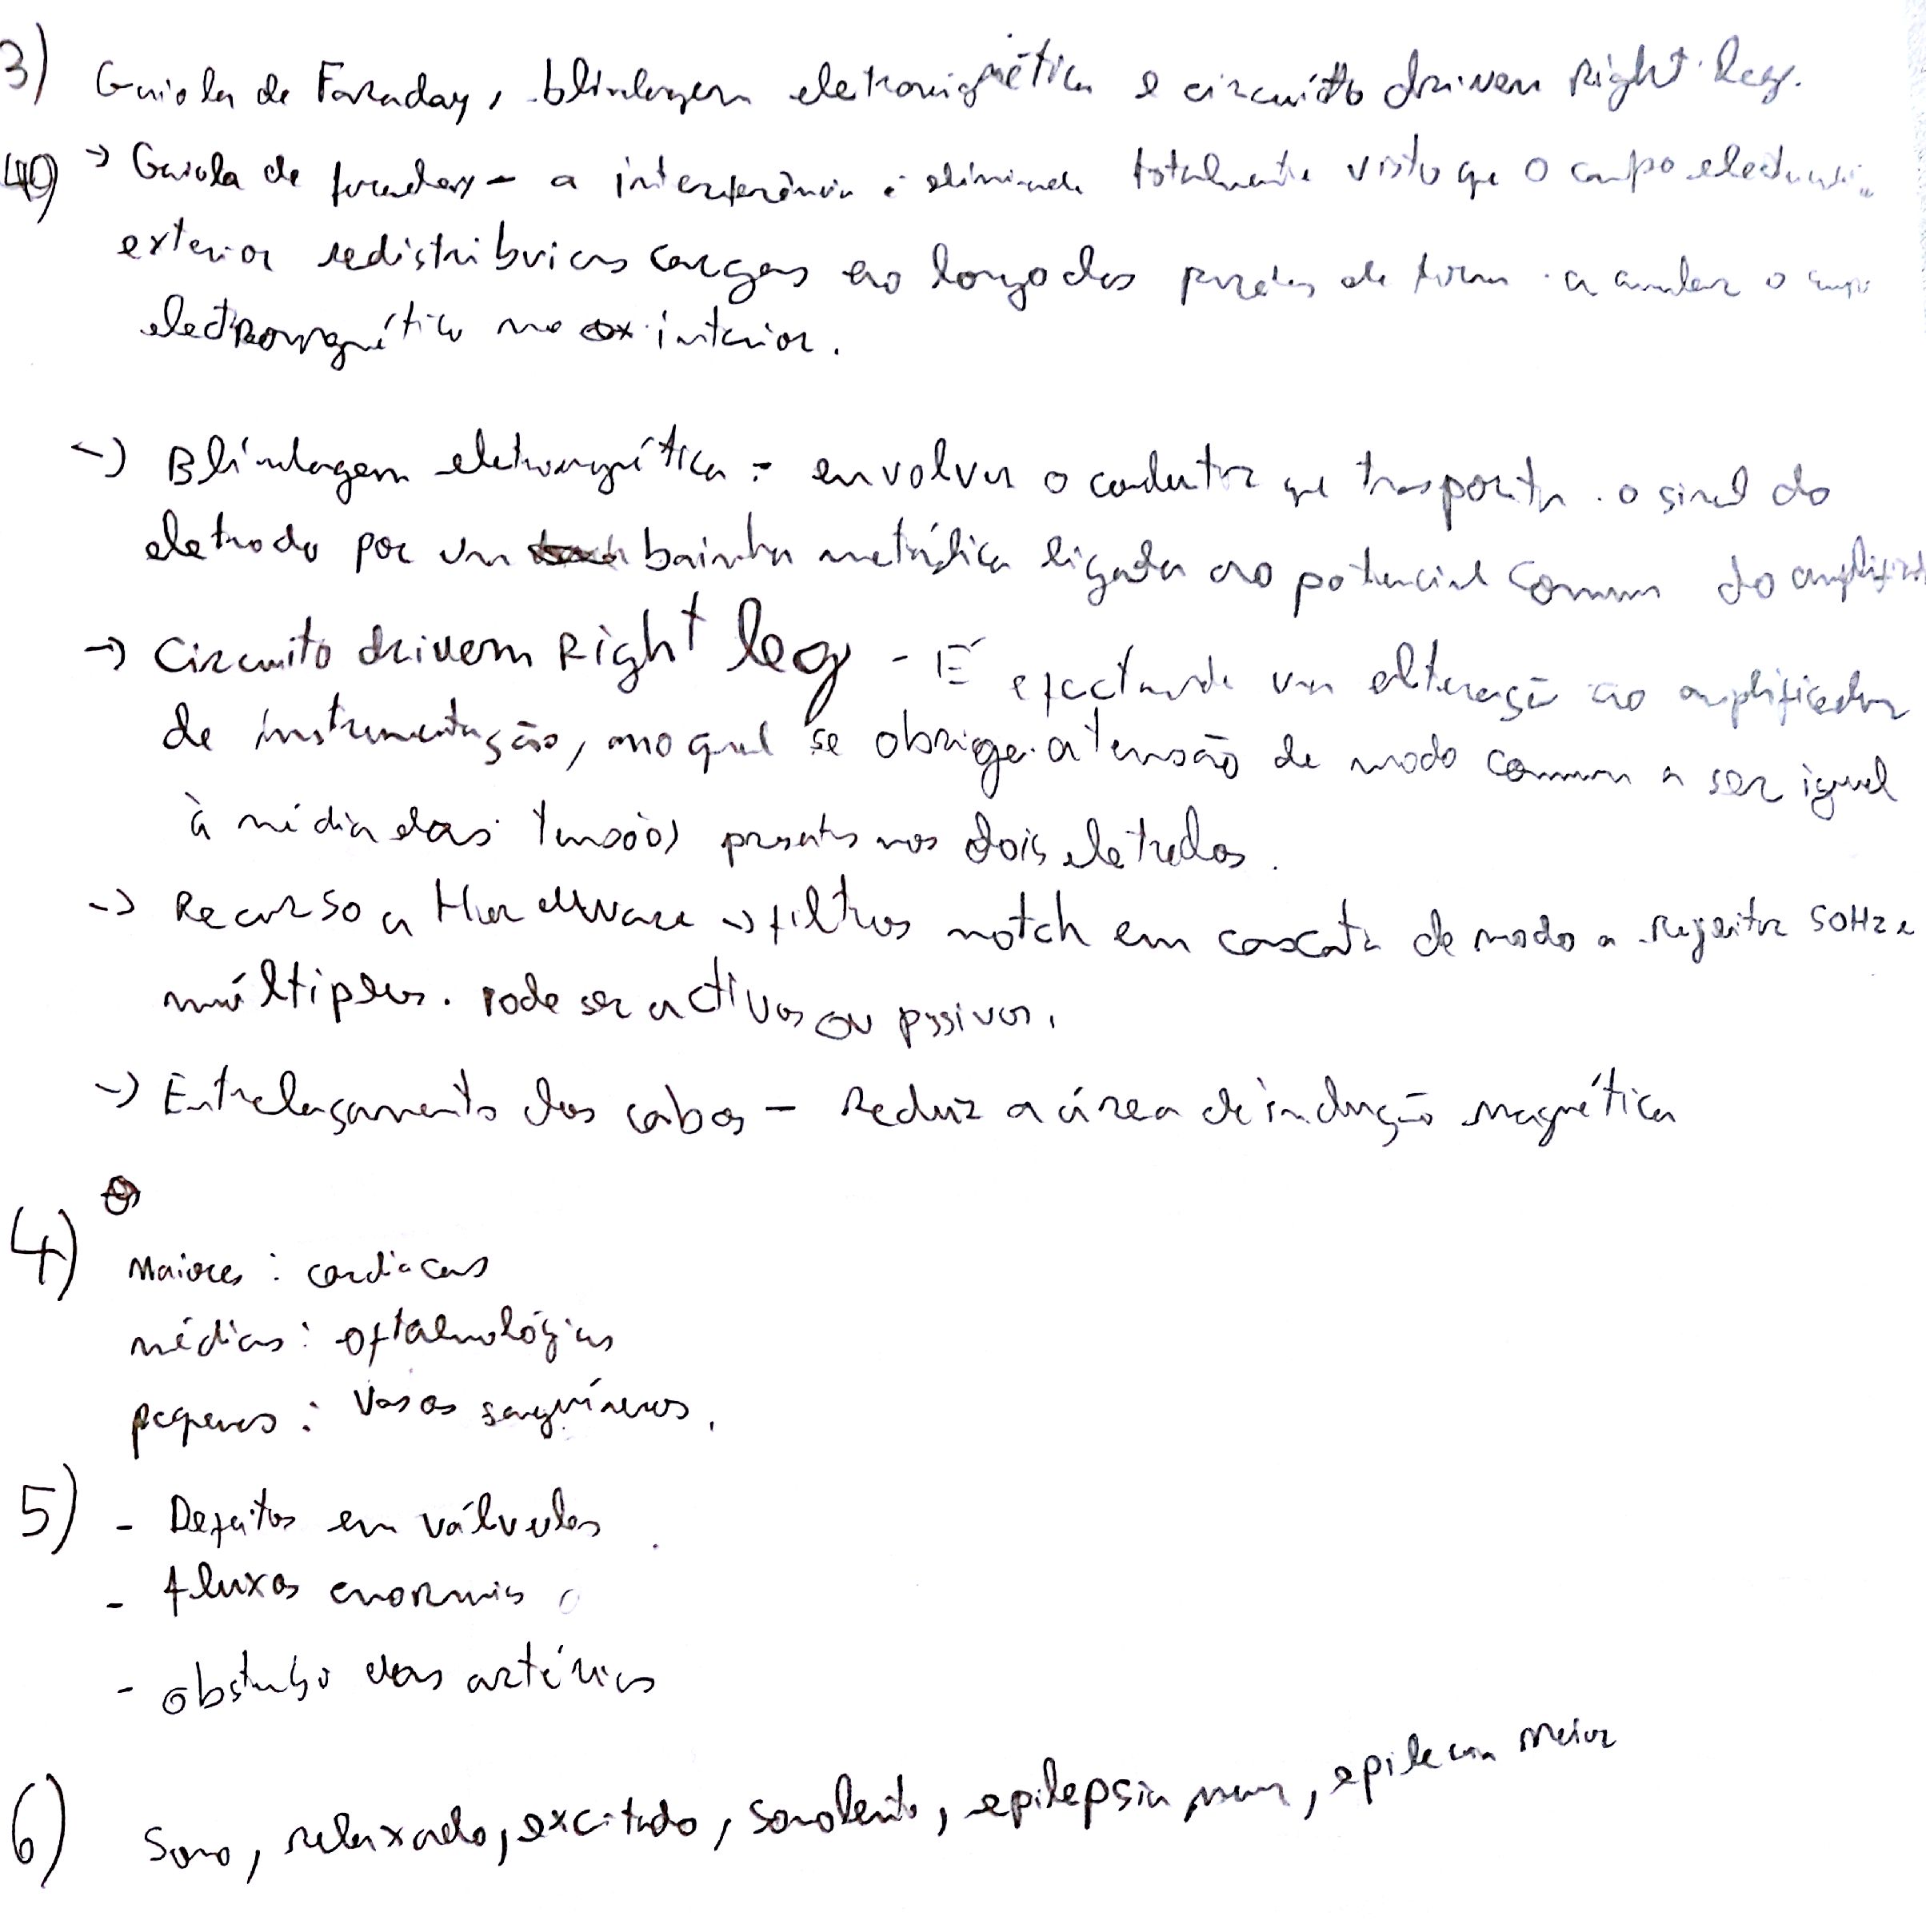 3) Gaiola de Faraday, blindagem eletromagnética e circuito driven Right Leg.
40) → Gaiola de faraday - a interferência é eliminada totalmente visto que o campo
exterior redistribui as cargas ao longo das paredes de forma a anular o campo
electromagnético no interior.
→ Blindagem eletromagnética - envolver o condutor que trasporta o sinal do
eletrodo por um bainha metálica ligada ao potencial comum do
→ Circuito drivem Right leg - É efectuada uma alteração ao amplificador
de instrumentação, no qual se obriga a tensão de modo comum a ser igual
à média das tensões presentes nos dois eletrodos.
→ Recurso a Hardware → filtros notch em cascata de modo a rejeitar 50Hz e
múltiplos. Pode ser activos ou passivos.
→ Entrelaçamento dos cabos - Reduz a área de indução magnética
4)
Maiores : cardíacas
médias : oftalmológicas
pequenas : Vasos sanguíneos.
5) - Defeitos em válvulas
- fluxos enormes
- obstrução das artérias
6) Sono, relaxado, excitado, sonolento, epilepsia epilepsia maior